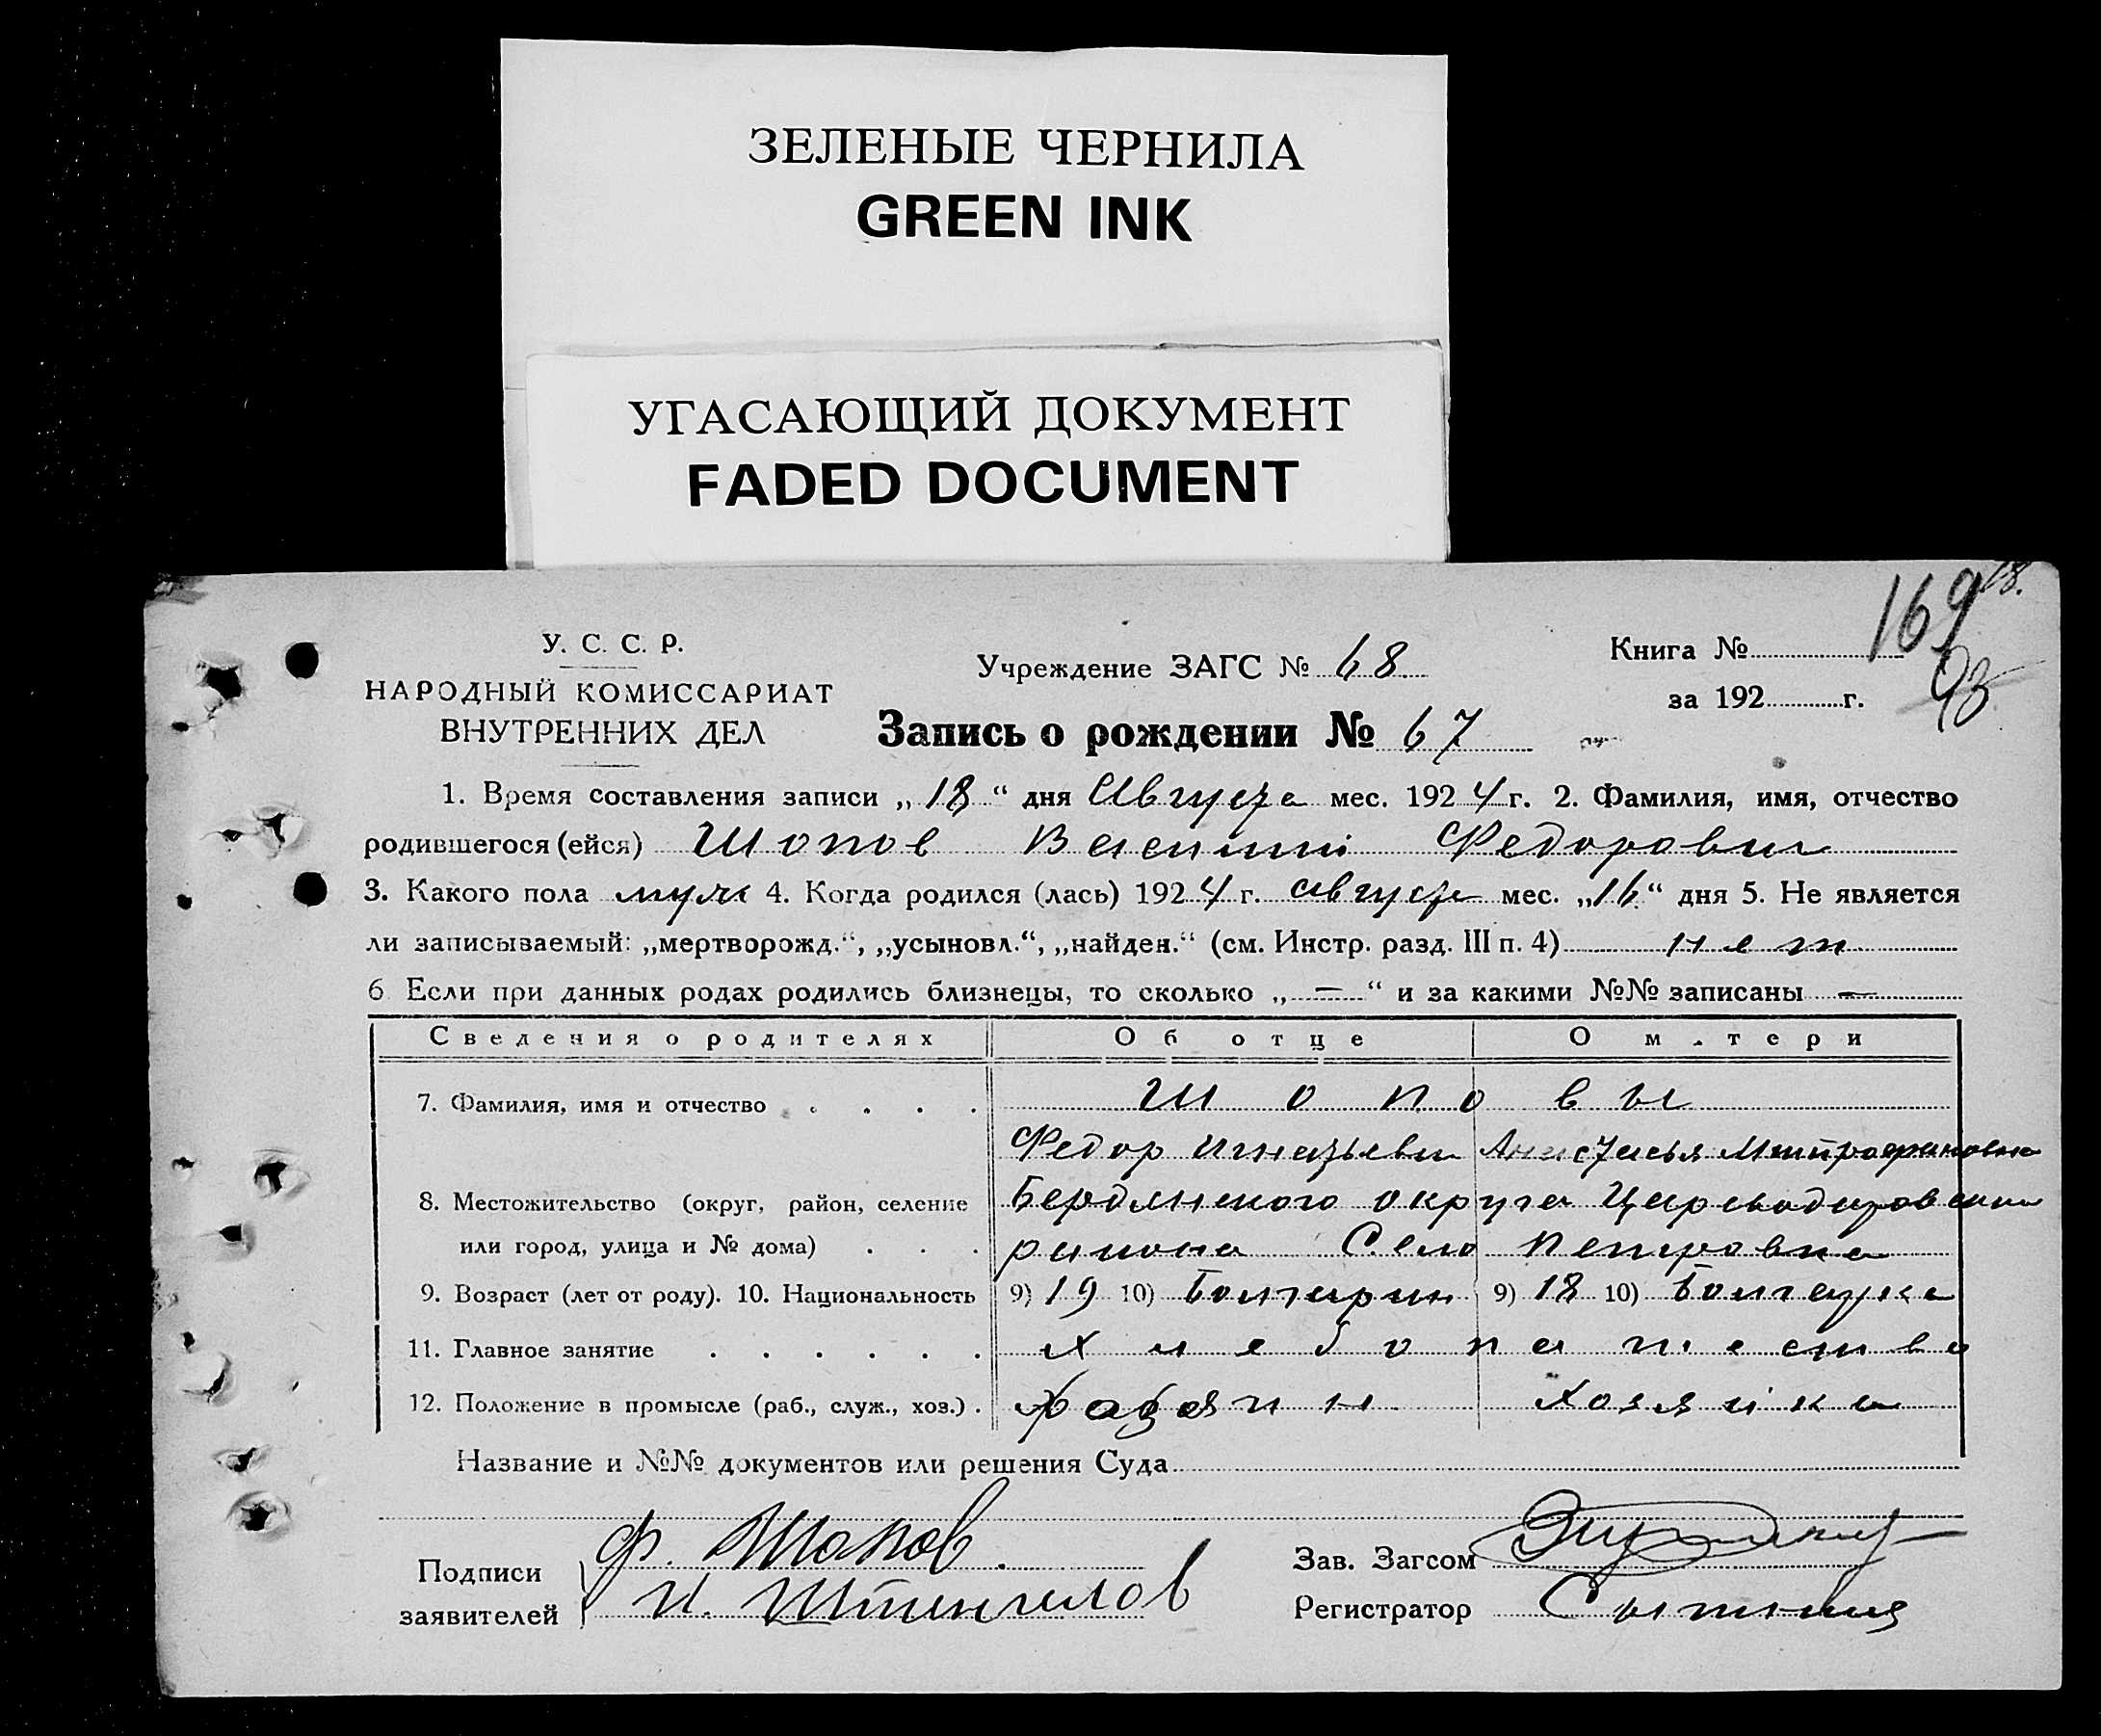 ЗЕЛЕНЫЕ ЧЕРНИЛА
GREEN INK
УГАСАЮЩИЙ ДОКУМЕНТ
FADED DOCUMENT
169
93
У. С. С. Р.
НАРОДНЫЙ КОМИССАРИАТ
ВНУТРЕННИХ ДЕЛ
Учреждение ЗАГС № 68
Книга №
за 192 г.
Запись о рождении № 67
1. Время составления записи „18“ дня Августа мес. 1924 г. 2. Фамилия, имя, отчество
родившегося (ейся) Шопов Василий Федорович
3. Какого пола муж 4. Когда родился (лась) 1924 г. августа мес. „16“ дня 5. Не является
ли записываемый: „мертворожд.“, „усыновл.“, „найден.“ (см. Инстр. разд. III п. 4) нет
6 Если при данных родах родились близнецы, то сколько „—“ и за какими №№ записаны —
Сведения о родителях Об отце О м.тери
7. Фамилия, имя и отчество . . . . . Шоповы
Федор Игнатьевич Анастасья Митрофановна
8. Местожительство (округ, район, селение Бердянского округа Цареводаровского
или город, улица и № дома) . . . района Село Петровка
9. Возраст (лет от роду). 10. Национальность 9) 19 10) Болгарин 9) 18 10) Болгарка
11. Главное занятие . . . . . . Хлебопашество
12. Положение в промысле (раб., служ., хоз.) . хозяин хозяйка
Название и №№ документов или решения Суда
Подписи
заявителей
Ф. Шопов.
И. Штенгелов
Зав. Загсом
Регистратор